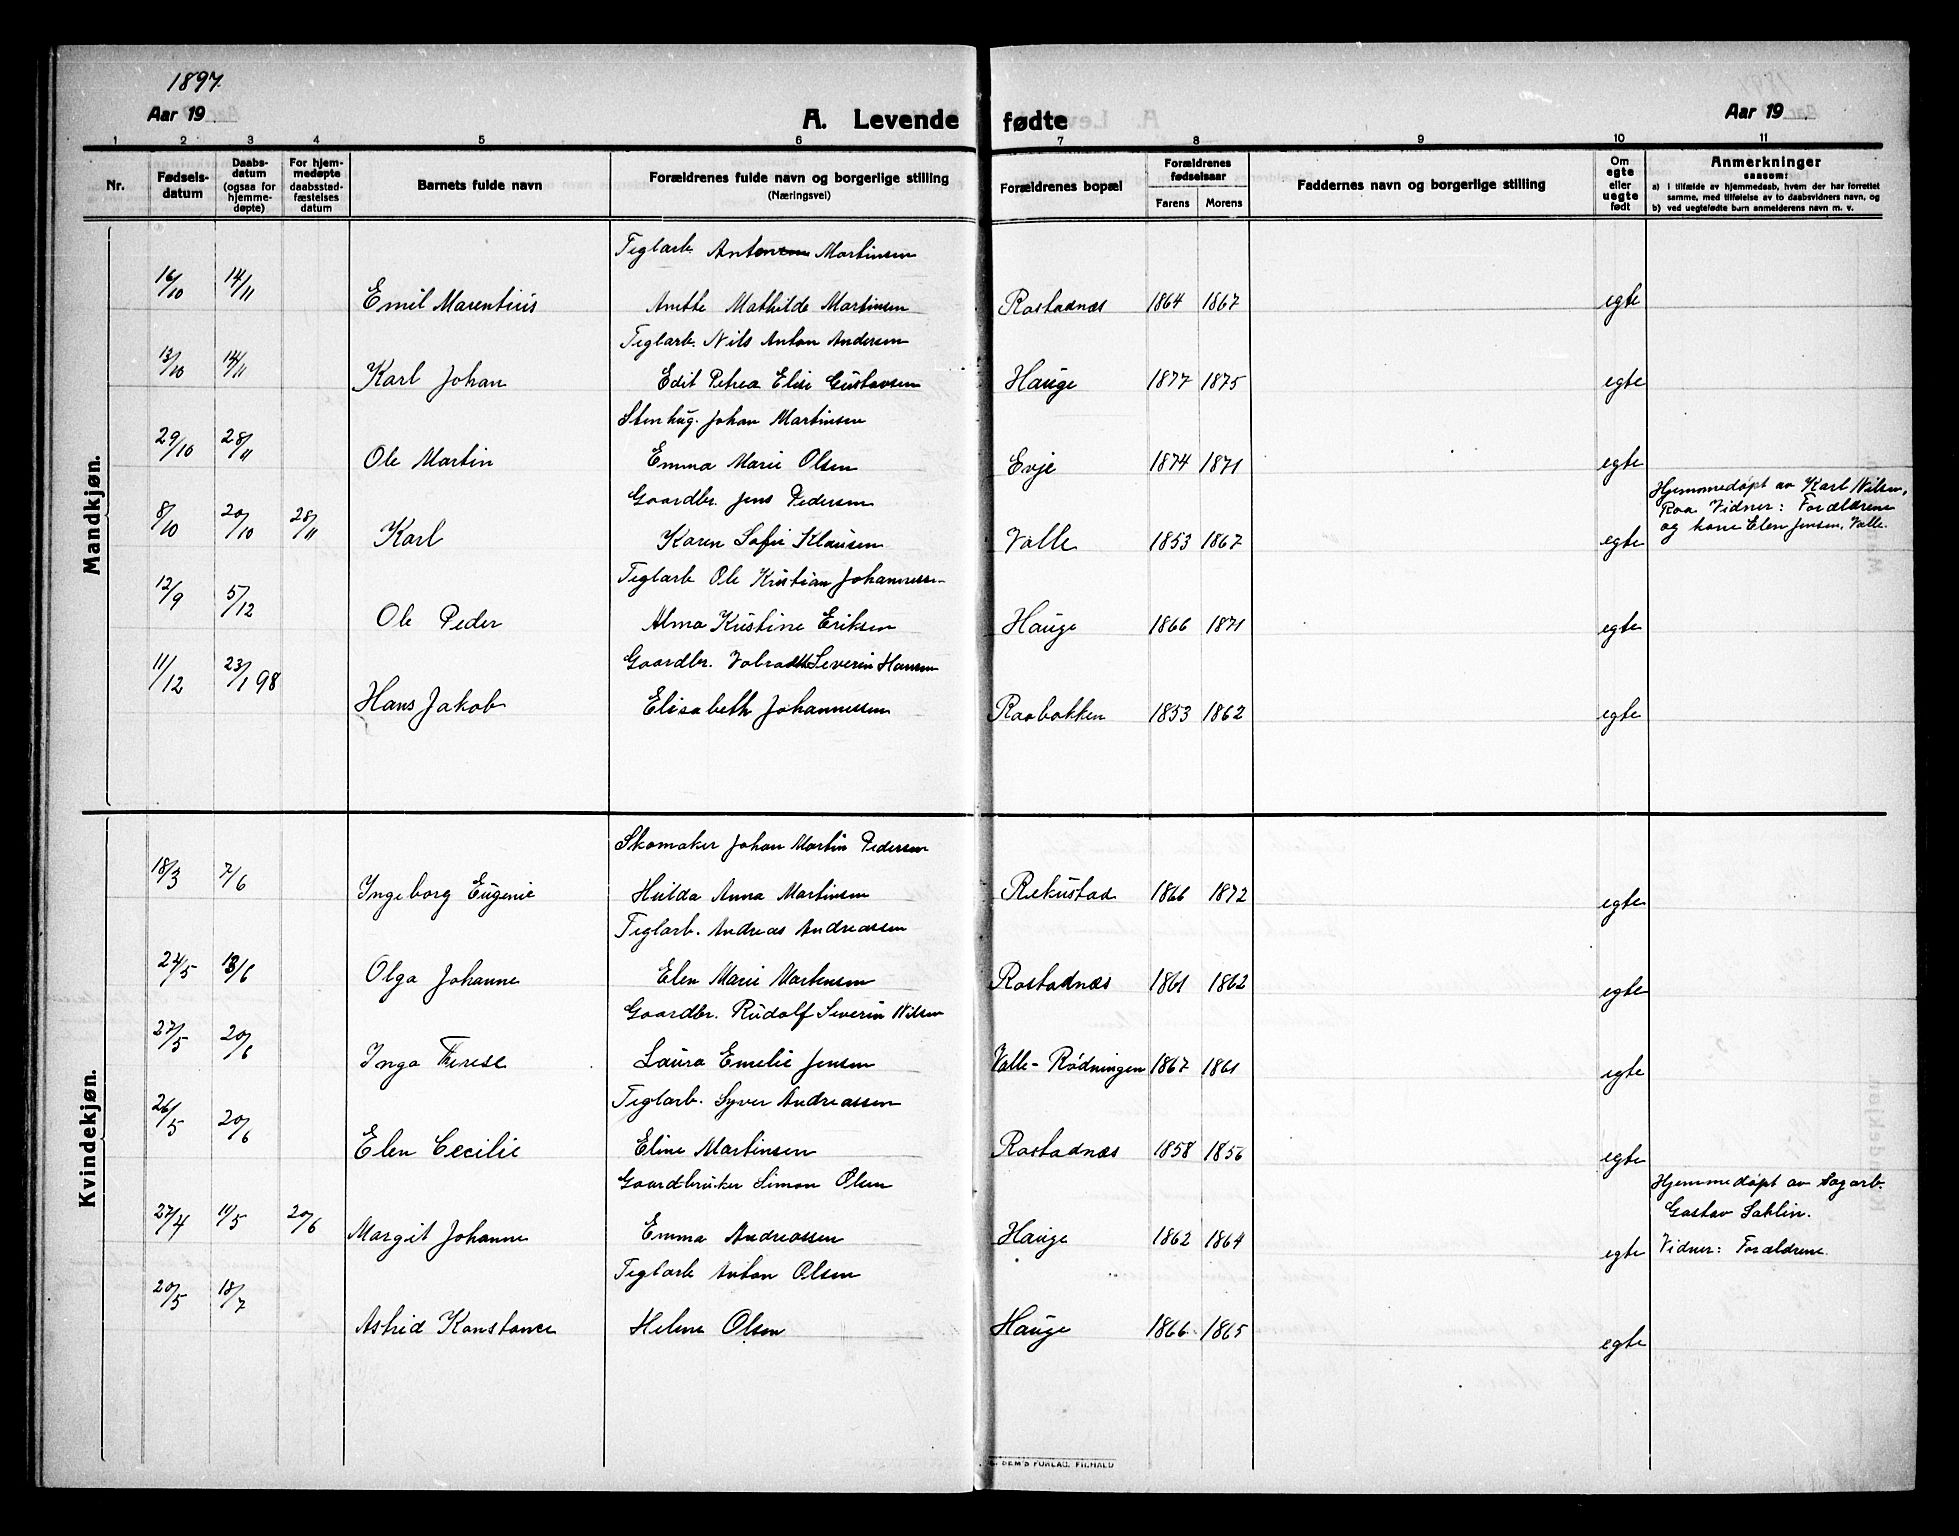 1897.
Aar 19
A. Levende fødte
Aar 19
1 2 3 4 5 6 7 8 9 10 11
Nr.
Fødsels-
datum
Daabs-
datum
(ogsaa for
hjemme-
døpte)
For hjem-
medøpte
daabsstad-
fæstelses
datum
Barnets fulde navn
Forældrenes fulde navn og borgerlige stilling
(Næringsvei)
Forældrenes bopæl
Forældrenes
fødselsaar
Farens Morens
Faddernes navn og borgerlige stilling
Om
egte
eller
uegte
født
Anmerkninger
saasom:
a) i tilfælde av hjemmedaab, hvem der har forrettet
samme, med tilføielse av to daabsvidners navn, og
b) ved uegtefødte barn anmelderens navn m. v.
Mandkjøn.
Teglarb. Anton Martinsen
16/10 14/11 Emil Marentius Anette Mathilde Martinsen Rostadnæs 1864 1867 egte
Teglarb. Nils Anton Andersen
13/10 14/11 Karl Johan Edit Petrea Elise Gustavsen Hauge 1877 1875 egte
Stenhug. Johan Martinsen
29/10 28/11 Ole Martin Emma Marie Olsen Evje 1874 1871 egte
Gaardbr. Jens Pedersen
8/10 20/10 28/11 Karl Karen Sofie Klausen Valle 1853 1867 egte
Hjemmedøpt av Karl Nilsen,
Raa Vidner: Forældrene
og kone Elen Jensen, Valle.
Teglarb Ole Kristian Johannesse-
12/9 5/12 Ole Peder Alma Kristine Eriksen Hauge 1866 1871 egte
Gaardbr. Volrath Severin Hansen
11/12 23/1 98 Hans Jakob Elisabeth Johannessen Raabakken 1853 1862 egte
Kvindekjøn.
Skomaker Johan Martin Pedersen
18/3 7/6 Ingeborg Eugenie Hulda Anna Martinsen Rekustad 1866 1872 egte
Teglarb. Andreas Andreassen
24/5 13/6 Olga Johanne Elen Marie Martensen Rostadnæs 1861 1862 egte
Gaardbr. Rudolf Severin Nilsen
27/5 20/6 Inga Therese Laura Emelie Jensen Valle-Rødningen 1867 1861 egte
Teglarb. Syver Andreassen
26/5 20/6 Elen Cecilie Eline Martinsen Rostadnæs 1858 1856 egte
Gaardbruker Simon Olsen
27/4 11/5 20/6 Margit Johanne Emma Andreassen Hauge 1862 1864 egte
Hjemmedøpt av Sagarb.
Gustav Sahlin.
Vidner: Forældrene.
Teglarb Anton Olsen
20/5 18/7 Astrid Konstance Helene Olsen Hauge 1866 1865 egte
FORLAG, FR.HALD